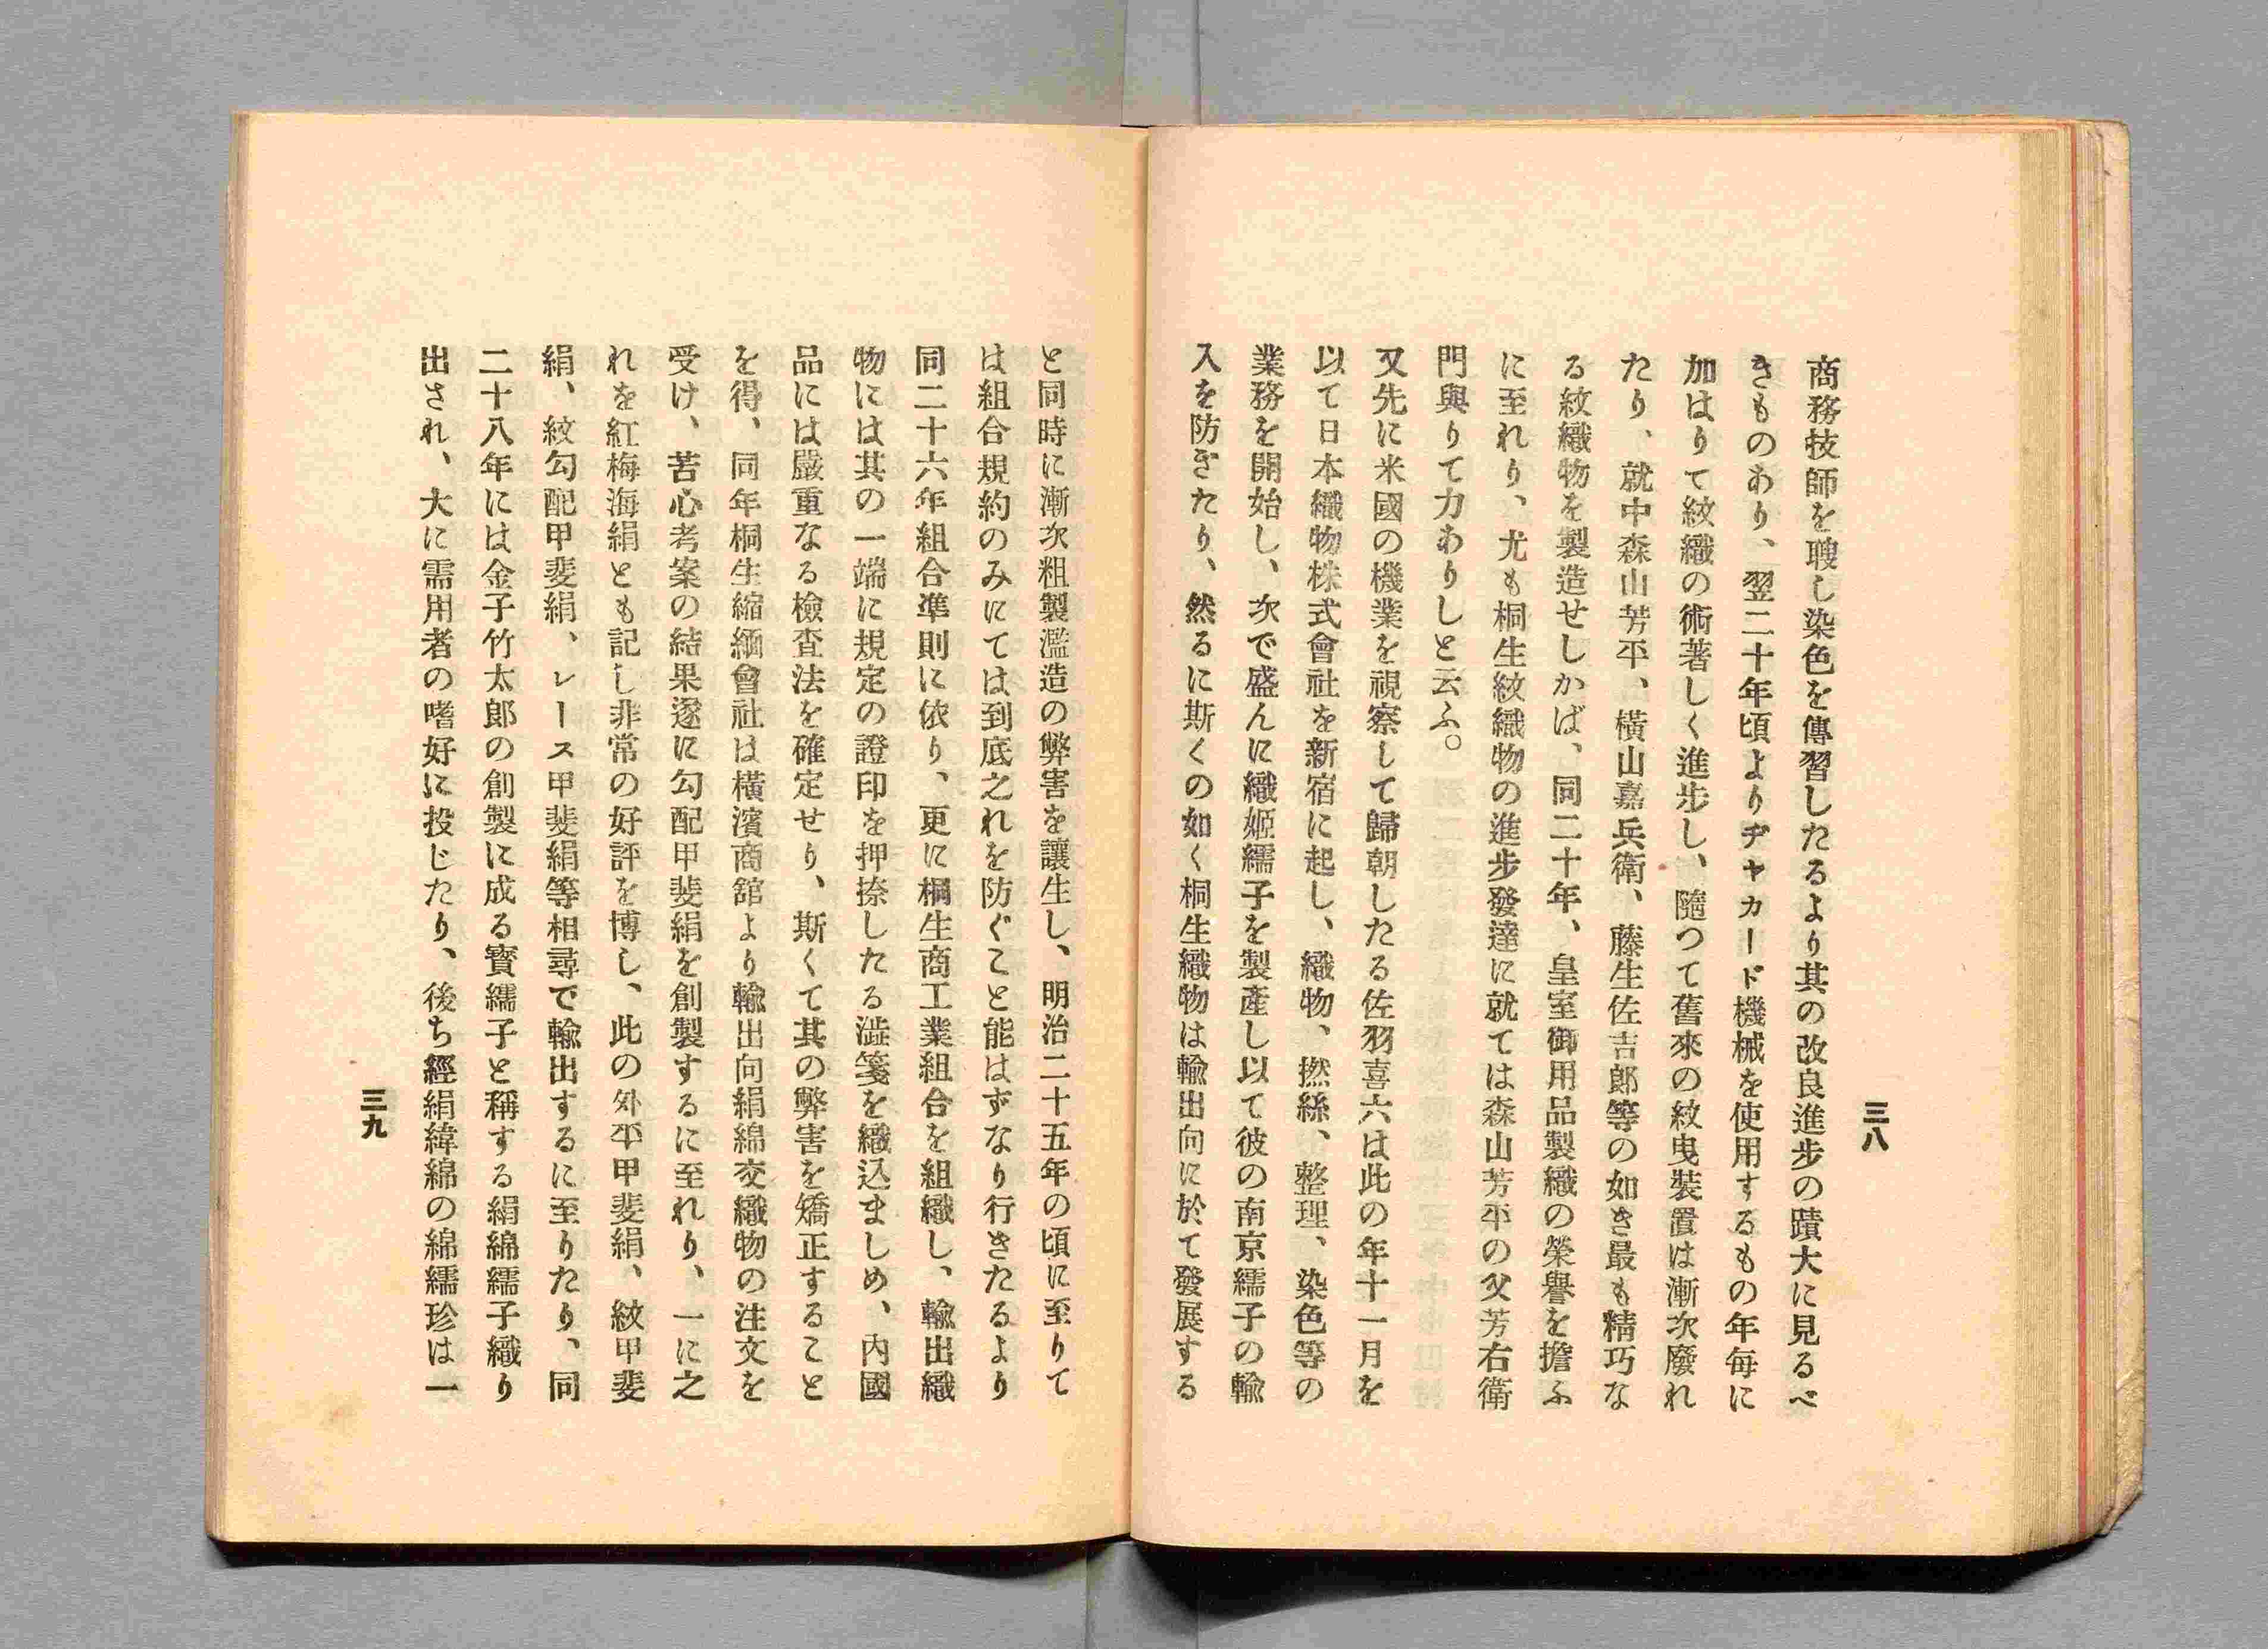 三八
商務技師を聘し染色を傳習したるより其の改良進步の蹟大に見るべ
きものあり、翌二十年頃よりヂャカード機械を使用するもの年每に
加はりて紋織の術著しく進步し、隨つて舊來の紋曳裝置は漸次廢れ
たり、就中森山芳平、横山嘉兵衞、藤生佐吉郎等の如き最も精巧な
る紋織物を製造せしかば、同二十年、皇室御用品製織の榮譽を擔ふ
に至れり、尤も桐生紋織物の進步發達に就ては森山芳平の父芳右衞
門與りて力ありしと云ふ。
又先に米國の機業を視察して歸朝したる佐羽喜六は此の年十一月を
以て日本織物株式會社を新宿に起し、織物、撚絲、整理、染色等の
業務を開始し、次で盛んに織姬繻子を製產し以て彼の南京繻子の輸
入を防ぎたり、然るに斯くの如く桐生織物は輸出向に於て發展する
と同時に漸次粗製濫造の弊害を讓生し、明治二十五年の頃に至りて
は組合規約のみにては到底之れを防ぐこと能はずなり行きたるより
同二十六年組合準則に依り、更に桐生商工業組合を組織し、輸出織
物には其の一端に規定の證印を押捺したる澁箋を織込ましめ、內國
品には嚴重なる檢查法を確定せり、斯くて其の弊害を矯正すること
を得、同年桐生縮緬會社は横濱商舘より輸出向絹綿交織物の注文を
受け、苦心考案の結果遂に勾配甲斐絹を創製するに至れり、一に之
れを紅梅海絹とも記し非常の好評を博し、此の外平甲斐絹、紋甲斐
絹、紋勾配甲斐絹、レース甲斐絹等相尋で輸出するに至りたり、同
二十八年には金子竹太郎の創製に成る寶繻子と稱する絹綿繻子織り
出され、大に需用者の嗜好に投じたり、後ち經絹緯綿の綿繻珍は一
三九